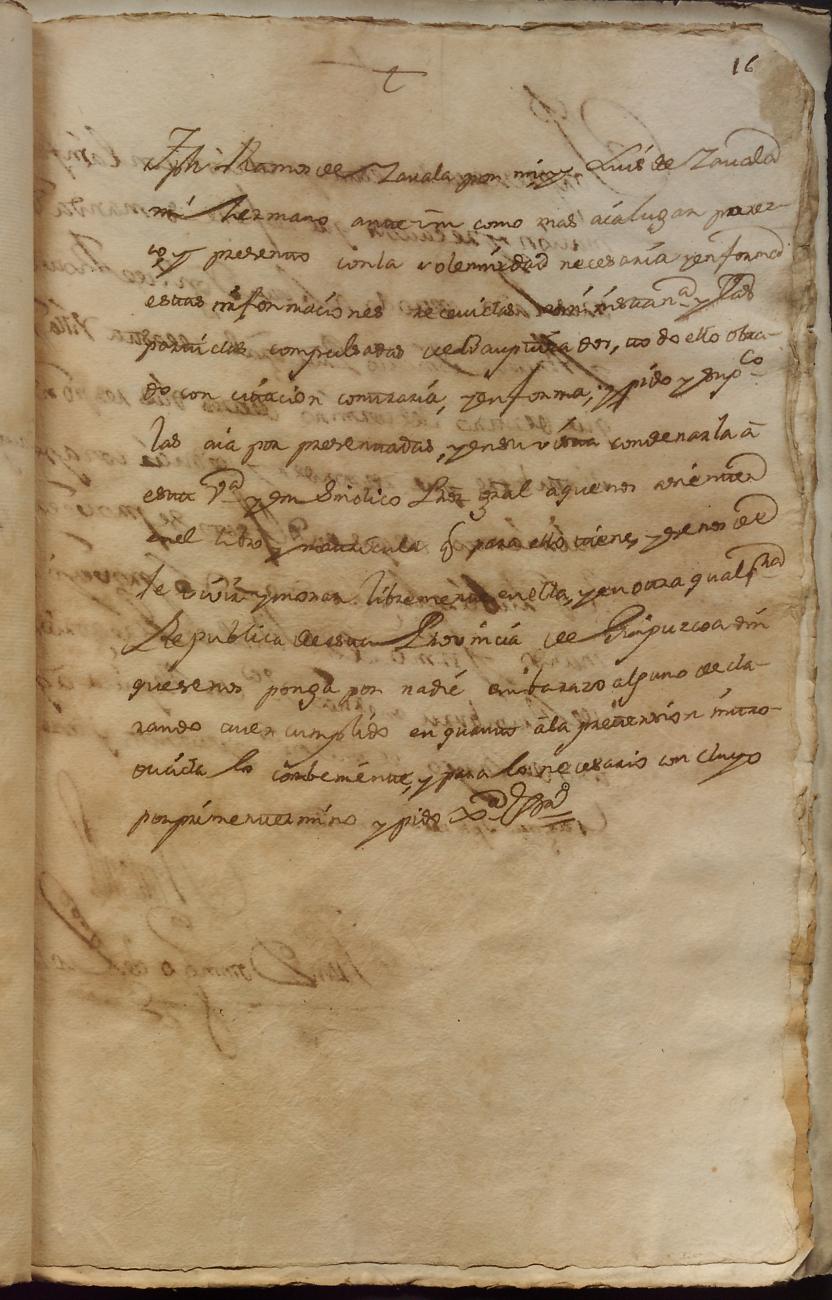 16
Jph Ramos de Zavala por mi y Luis de Zavala
mi hermano ante Vm como mas aia lugar parez-
co y presento con la solemnidad necesaria y en forma
estas informaciones recevidas a mi instan.a y las
partidas compulsadas todo ello obra-
do con citacion contraria, y en forma, y pido y sup.co
las aia por presentadas, y en su vista condenar la a
esta V.a y su Sindico Pror gral a que nos asienten
en el libro y matricula q para ello tiene, y se nos de-
je vivir y morar libremente en ella, y en otra qualqra
Republica de esta Provincia de Guipuzcoa sin
que se nos ponga por nadie embarazo alguno decla-
rando aver cumplido en quanto a la pretension intro-
ducida lo combeniente, y para lo necesario concluyo
por primer termino y pido